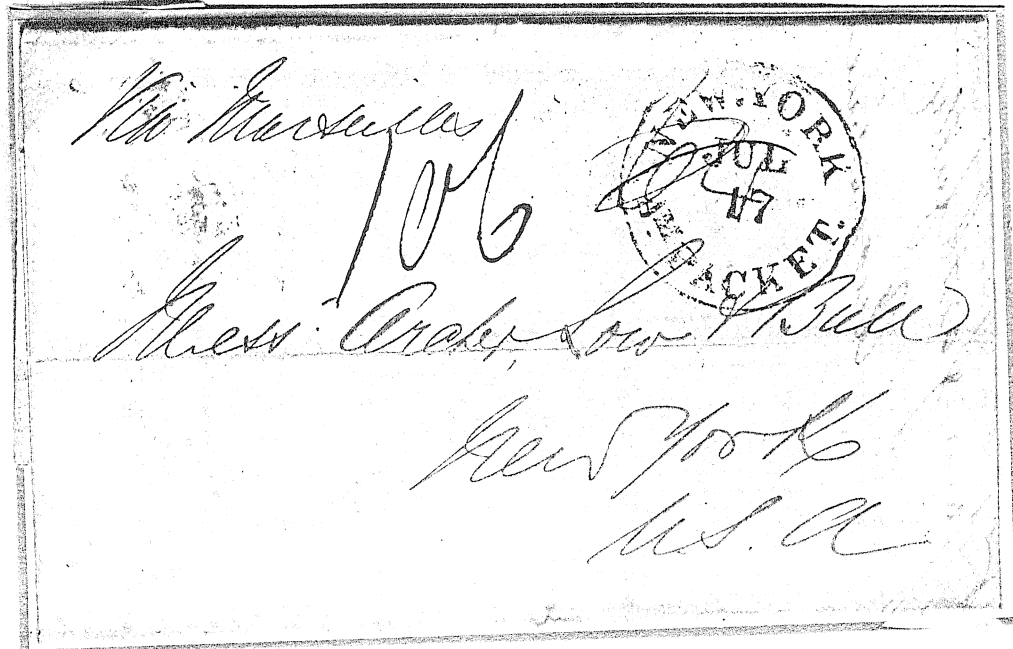 Via Marseilles
106
NEW. YORK
JUL
17
PACKET.
Mess. Archer, Low & Bull
New York
U.S.A